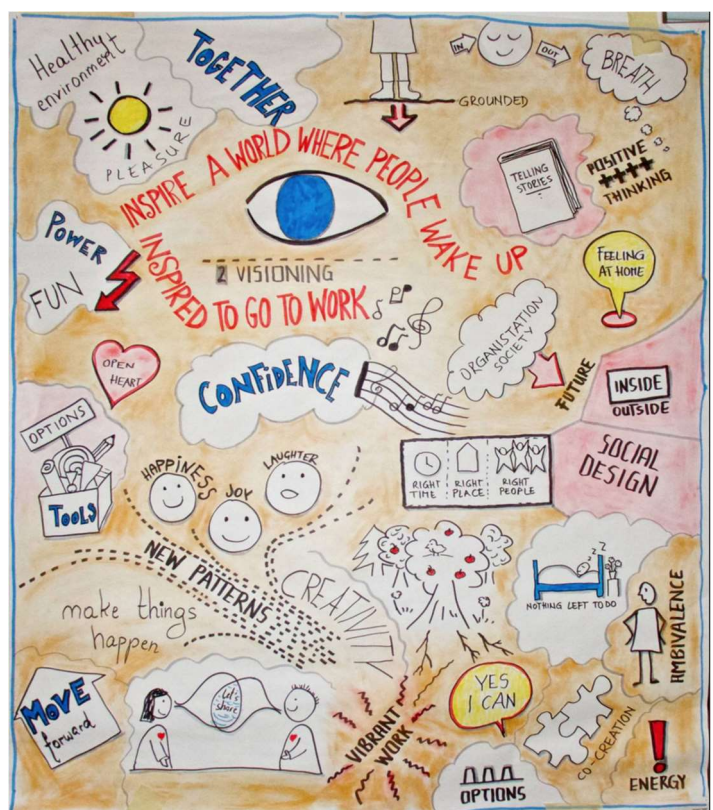 Healthy
environment
PLEASURE
TOGETHER
GROUNDED
IN
OUT
BREATH
POSITIVE
THINKING
TELLING
STORIES
INSPIRE A WORLD WHERE PEOPLE WAKE UP
INSPIRED TO GO TO WORK
2 VISIONING
POWER
FUN
FEELING
AT HOME
OPEN
HEART
CONFIDENCE
ORGANISTATION
SOCIETY
FUTURE
INSIDE
OUTSIDE
SOCIAL
DESIGN
OPTIONS
TOOLS
HAPPINESS
JOY
LAUGHTER
RIGHT
TIME
RIGHT
PLACE
RIGHT
PEOPLE
NEW PATTERNS
CREATIVITY
make things
happen
zzZ
NOTHING LEFT TO DO
AMBIVALENCE
MOVE
forward
let's
share
VIBRANT
WORK
YES
I CAN
CO-CREATION
OPTIONS
ENERGY